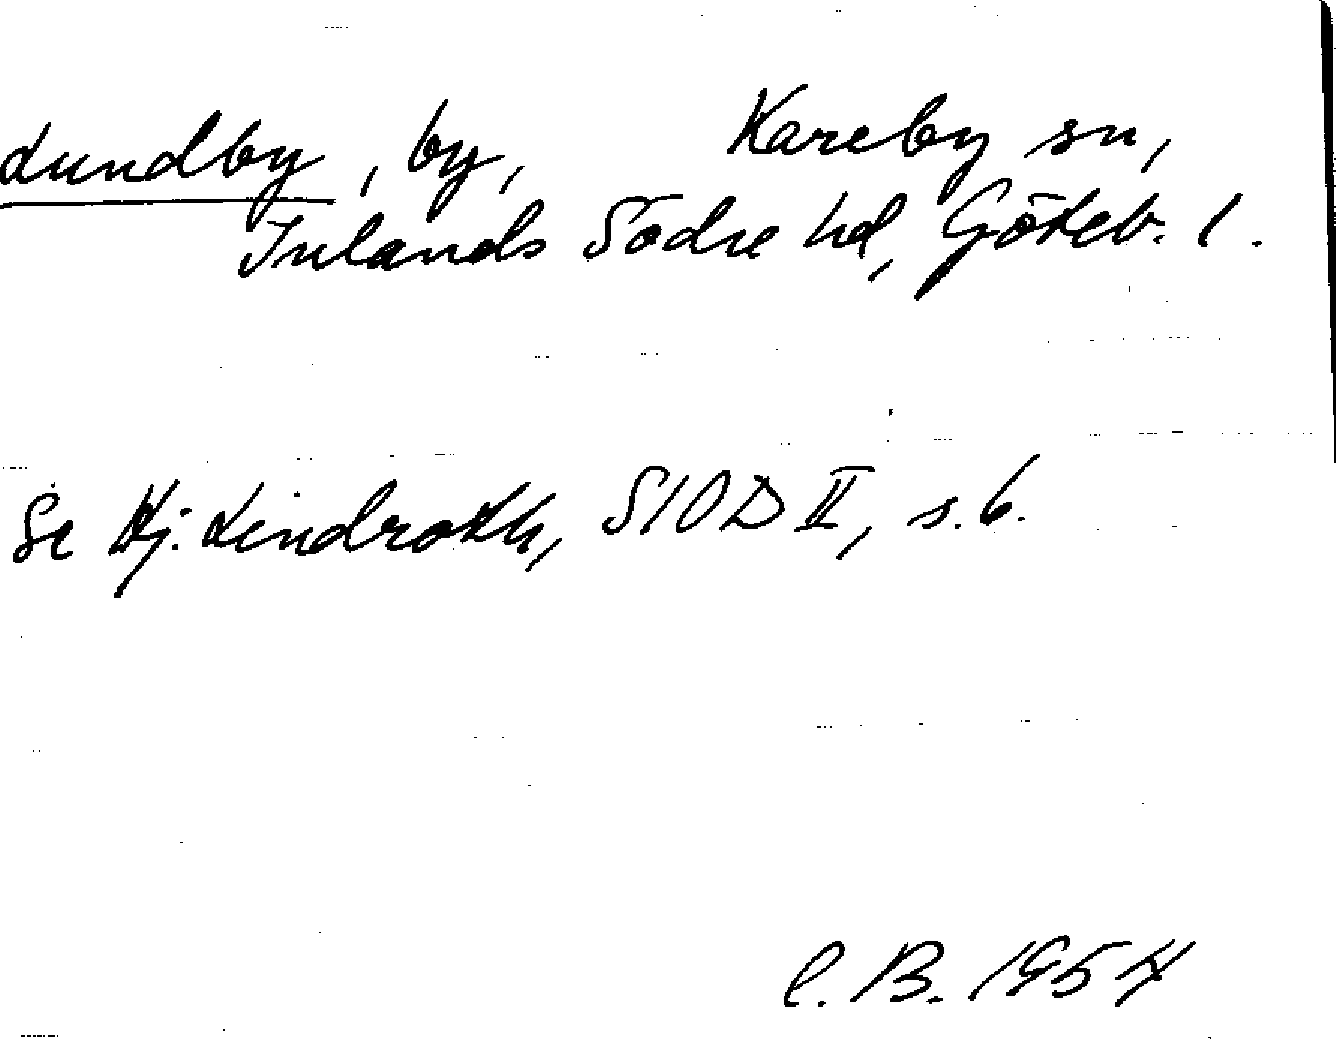 Lundby, by, Kareby sn,
Inlands Södre hd, Göteb. l.
Se Hj. Lindroth, SIOD II, s. 6.
C. B. 1954